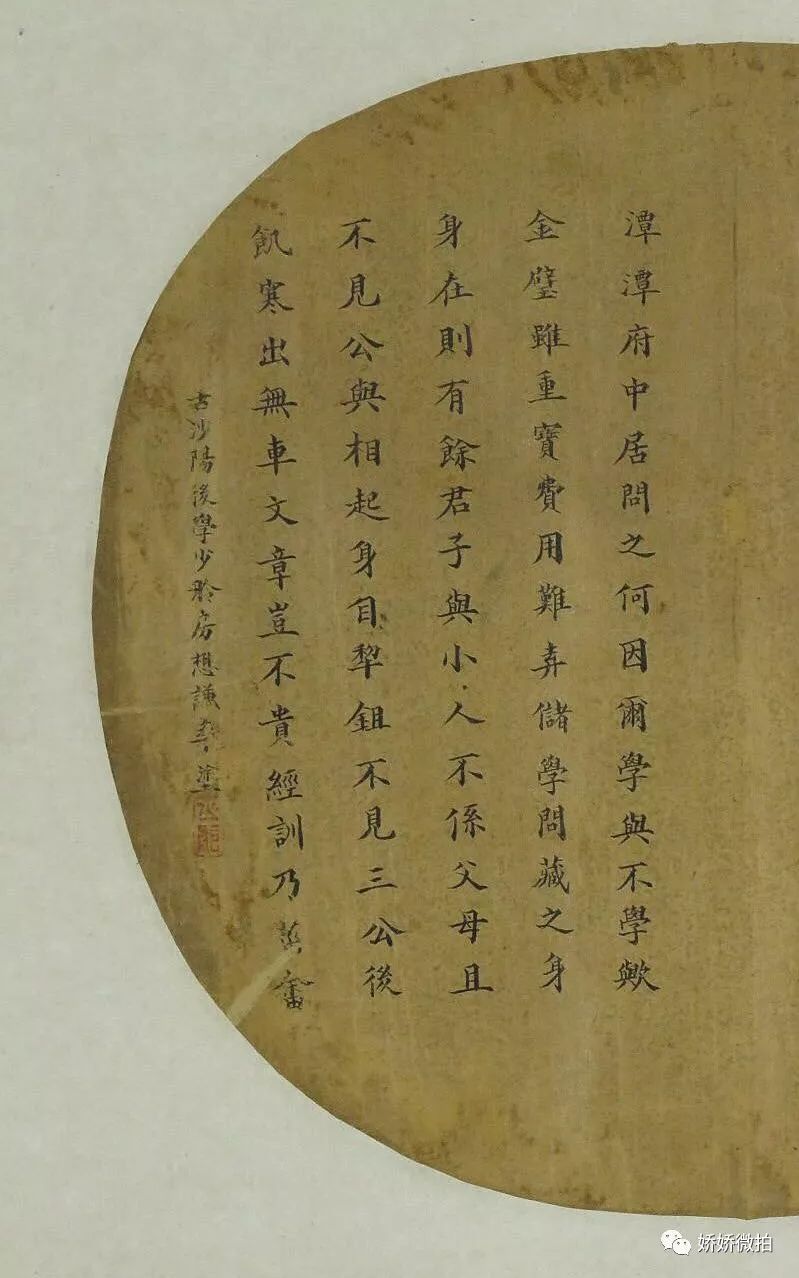 潭潭府中居問之何因爾學與不學歟
金璧雖重寶費用難弆儲學問藏之身
身在則有餘君子與小人不係父母且
不見公與相起身自犂鉏不見三公後
飢寒出無車文章豈不貴經訓乃菑畬
古沙陽後學少聆房懋謙塗
娇娇微拍